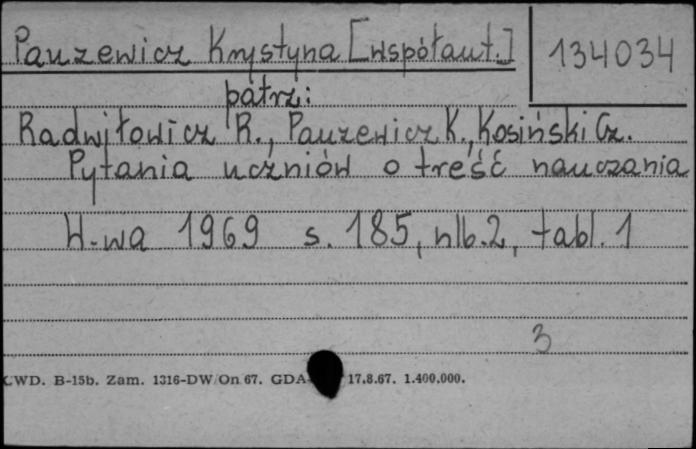 Pauzewicz Krystyna [współaut.]
134034
patrz:
Radwiłowicz R., Pauzewicz K., Kosiński Cz.
Pytania uczniów o treść nauczania
W-wa 1969 s. 185, nlb. 2, tabl. 1
3
CWD. B-15b. Zam. 1316-DW/On 67. GDA 17.8.67. 1.400.000.